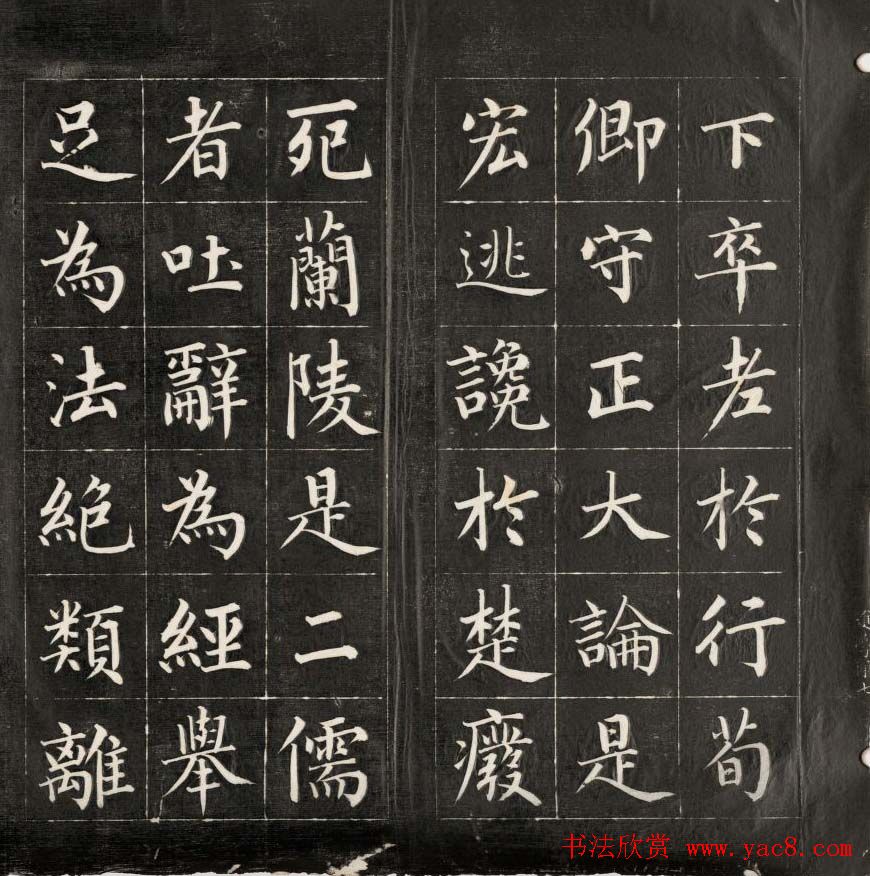 下卒老於行荀
卿守正大論是
宏逃讒於楚癈
死蘭陵是二儒
者吐辭為經舉
足為法絕類離
书法欣赏 www.yac8.com